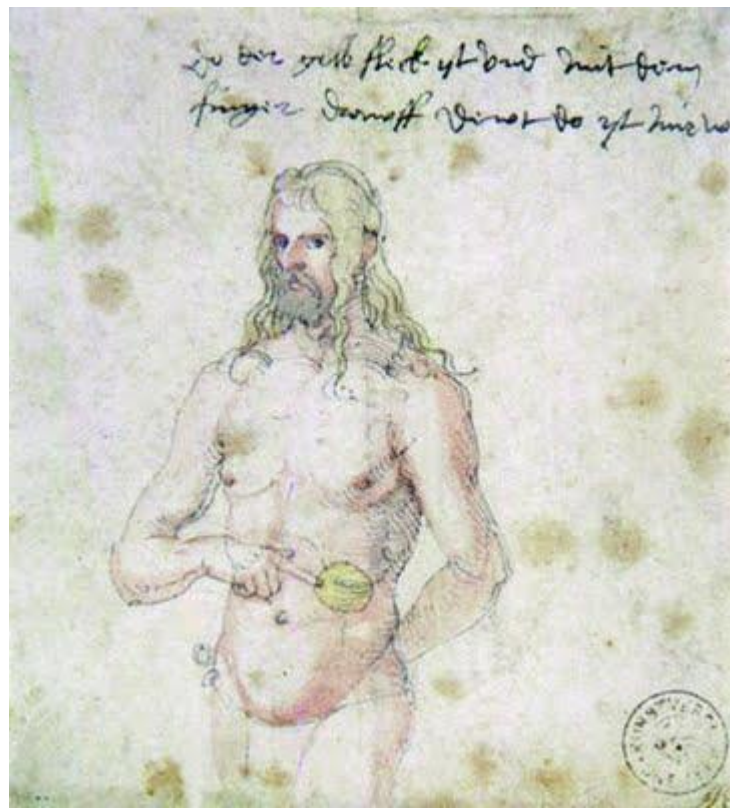 Do der gelb fleck ist und mit dem
finger drawff dewt do ist mir w